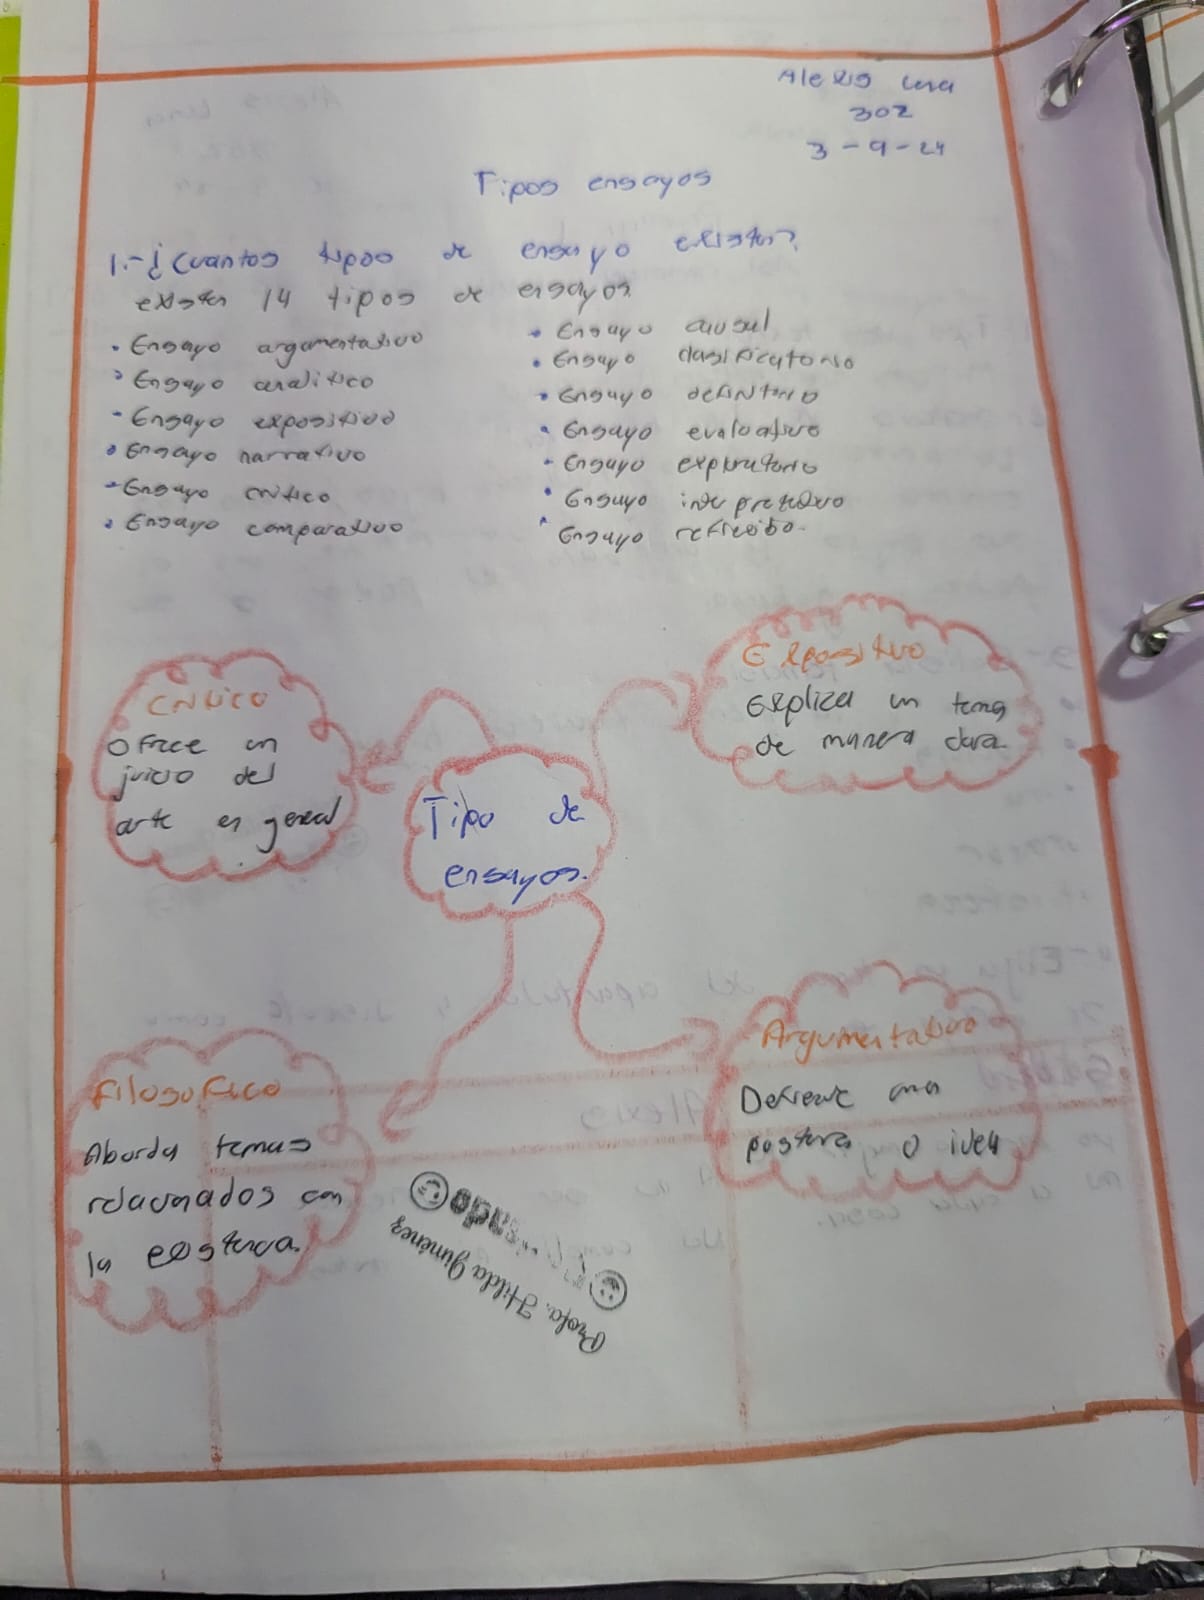 Alexis Lera
302
3-9-24
Tipos ensayos
1.-¿Cuantos tipos de ensayo existen?
existen 14 tipos de ensayos
• Ensayo argumentativo
• Ensayo analitico
• Ensayo expositivo
• Ensayo narrativo
• Ensayo critico
• Ensayo comparativo
• Ensayo causal
• Ensayo clasificatorio
• Ensayo definitorio
• Ensayo evaluativo
• Ensayo exploratorio
• Ensayo interpretativo
• Ensayo reflexibo.
Critico
Ofrece un
juicio del
arte en general
Expositivo
Explica un tema
de manera clara.
Tipo de
ensayos.
Filosofico
Aborda temas
relacionados con
la existencia.
Argumentativo
Defiende una
postura o idea
Profa. Hilda Jiménez